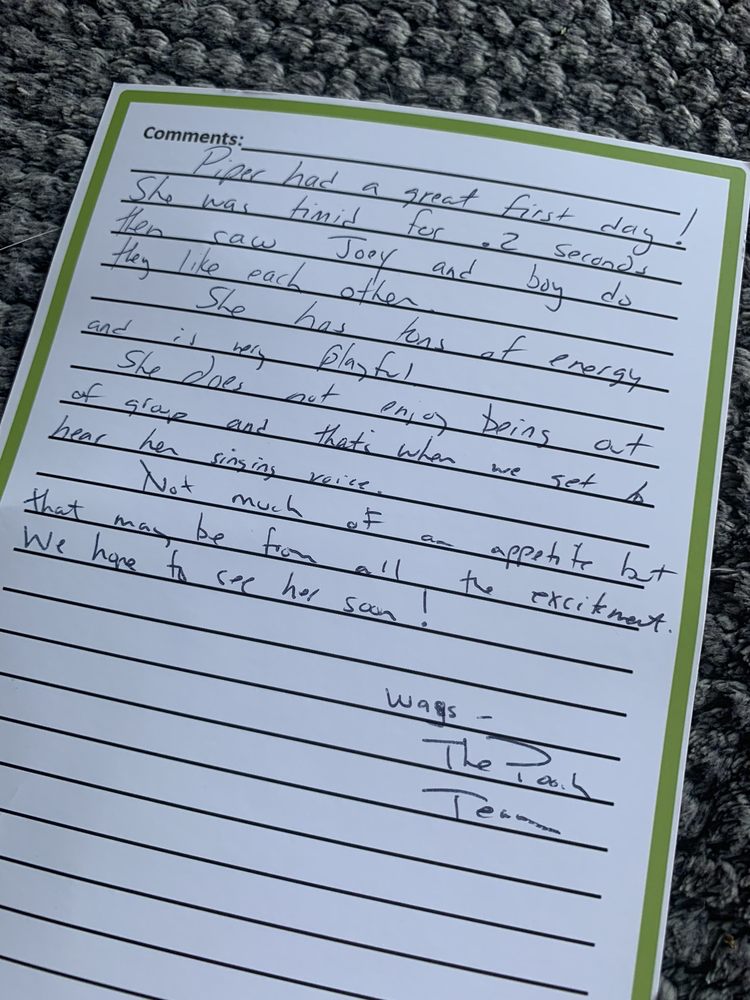 Comments:
Piper had a great first day!
She was timid for .2 seconds
then saw Joey and boy do
they like each other.
She has tons of energy
and is very playful
She does not enjoy being out
of group and that's when we get to
hear her singing voice.
Not much of an appetite but
that may be from all the excitment.
We hope to see her soon!
Wags -
The Pooch
Team